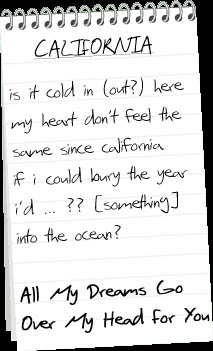 CALIFORNIA
is it cold in (out?) here
my heart don't feel the
same since california
if i could bury the year
i'd ... ?? [something]
into the ocean?
All My Dreams Go
Over My Head for You